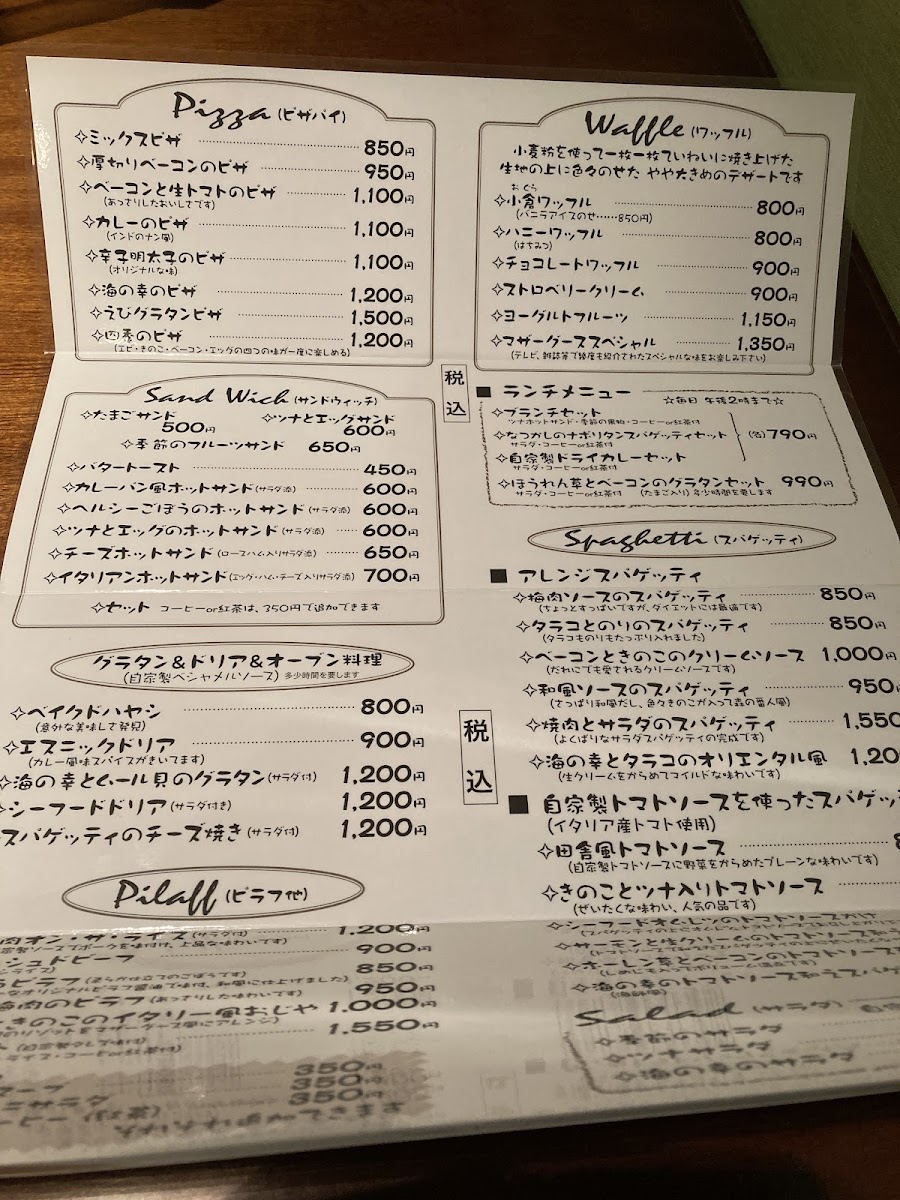 Pizza (ピザパイ)
✧ミックスピザ 850円
✧厚切りベーコンのピザ 950円
✧ベーコンと生トマトのピザ 1,100円
(あっさりしたおいしてです)
✧カレーのピザ 1,100円
(インドのナン風)
✧辛子明太子のピザ 1,100円
(オリジナルな味)
✧海の幸のピザ 1,200円
✧えびグラタンピザ 1,500円
✧四季のピザ 1,200円
(エビ・きのこ・ベーコン・エッグの四つの味が一度に楽しめる)
Waffle (ワッフル)
小麦粉を使って一枚一枚ていねいに焼き上げた
生地の上に色々のせた やや大きめのデザートです
おぐら
✧小倉ワッフル 800円
(バニラアイスのせ……850円)
✧ハニーワッフル 800円
(はちみつ)
✧チョコレートワッフル 900円
✧ストロベリークリーム 900円
✧ヨーグルトフルーツ 1,150円
✧マザーグーススペシャル 1,350円
(テレビ、雑誌等で幾度も紹介されたスペシャルな味をお楽しみ下さい)
税込
Sand Wich (サンドウィッチ)
✧たまごサンド 500円
✧ツナとエッグサンド 600円
✧季節のフルーツサンド 650円
✧バタートースト 450円
✧カレーパン風ホットサンド(サラダ添) 600円
✧ヘルシーごぼうのホットサンド(サラダ添) 600円
✧ツナとエッグのホットサンド(サラダ添) 600円
✧チーズホットサンド(ロースハム入りサラダ添) 650円
✧イタリアンホットサンド(エッグ・ハム・チーズ入りサラダ添) 700円
✧セット コーヒーor紅茶は、350円で追加できます
■ ランチメニュー ☆毎日 午後2時まで☆
✧ブランチセット
ツナホットサンド・季節の果物・コーヒーor紅茶付
✧なつかしのナポリタンスパゲッティセット (各)790円
サラダ・コーヒーor紅茶付
✧自家製ドライカレーセット
サラダ・コーヒーor紅茶付
✧ほうれん草とベーコンのグラタンセット 990円
サラダ・コーヒーor紅茶付 (たまご入り) 多少時間を要します
グラタン&ドリア&オーブン料理
(自家製ベシャメルソース) 多少時間を要します
✧ベイクドハヤシ 800円
(意外な美味して発見)
✧エスニックドリア 900円
(カレー風味スパイスがきいてます)
✧海の幸とムール貝のグラタン(サラダ付) 1,200円
✧シーフードドリア(サラダ付き) 1,200円
スパゲッティのチーズ焼き(サラダ付) 1,200円
税込
Spaghetti (スパゲッティ)
■ アレンジスパゲッティ
✧梅肉ソースのスパゲッティ 850円
(ちょっとすっぱいですが、ダイエットには最適です)
✧タラコとのりのスパゲッティ 850円
(タラコものりもたっぷり入れました)
✧ベーコンときのこのクリームソース 1,000円
(だれにでも愛されるクリームソースです)
✧和風ソースのスパゲッティ 950円
(さっぱり和風だし、色々きのこが入って森の番人風)
✧焼肉とサラダのスパゲッティ 1,550
(よくばりなサラダスパゲッティの完成です)
✧海の幸とタラコのオリエンタル風 1,20
(生クリームをからめてマイルドな味わいです)
■ 自家製トマトソースを使ったスパゲッ
(イタリア産トマト使用)
✧田舎風トマトソース
(自家製トマトソースに野菜をからめたプレーンな味わいです)
✧きのことツナ入りトマトソース
(ぜいたくな味わい、人気の品です)
✧シーフードオムレツのトマトソースがけ
✧サーモンと生クリームのトマトソース
✧ホーレン草とベーコンのトマトソース
✧海の幸のトマトソース
Salad (サラダ)
✧季節のサラダ
✧ツナサラダ
✧海の幸のサラダ
Pilaff (ピラフ他)
肉オン・ザ・ライス(サラダ付) 1,200円
ッシュドビーフ 900円
850円
梅肉のピラフ(あっさりした味わいです) 950円
きのこのイタリー風おじや 1,000円
1,550円
ライス・コーヒーor紅茶付)
350円
350円
350円